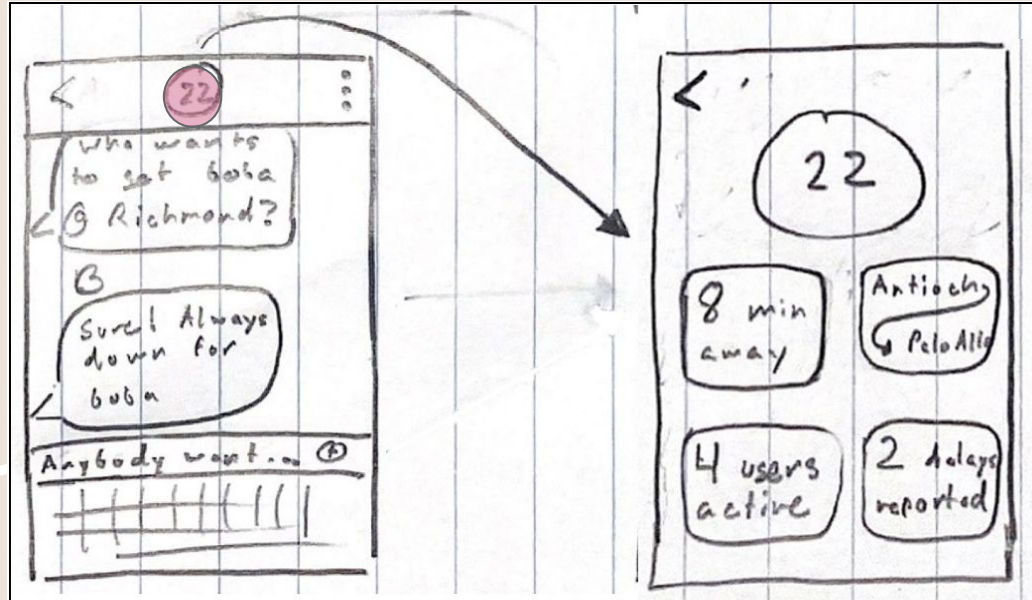 22
who wants
to get boba
@ Richmond?
Sure! Always
down for
boba
Anybody want...
22
8 min
away
Antioch
Palo Alto
4 users
active
2 delays
reported